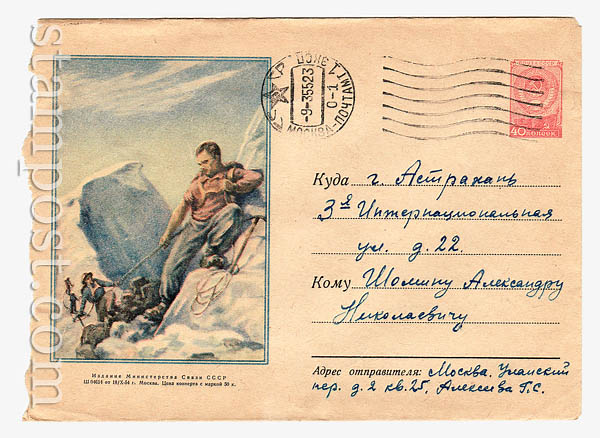 stampost.com
МОСКВА-ПОЧТАМТ 1
-9-3 55 23
0-1
ПОЧТА СССР
40 КОПЕЕК
Куда г. Астрахань
3я Интернациональная
ул. д. 22.
Кому Шомину Александру
Николаевичу
Адрес отправителя: Москва. Уланский
пер. д. 2 кв. 25, Алексеева Г.С.
Издание Министерства Связи СССР
Ш 04614 от 18/X-54 г. Москва. Цена конверта с маркой 50 к.